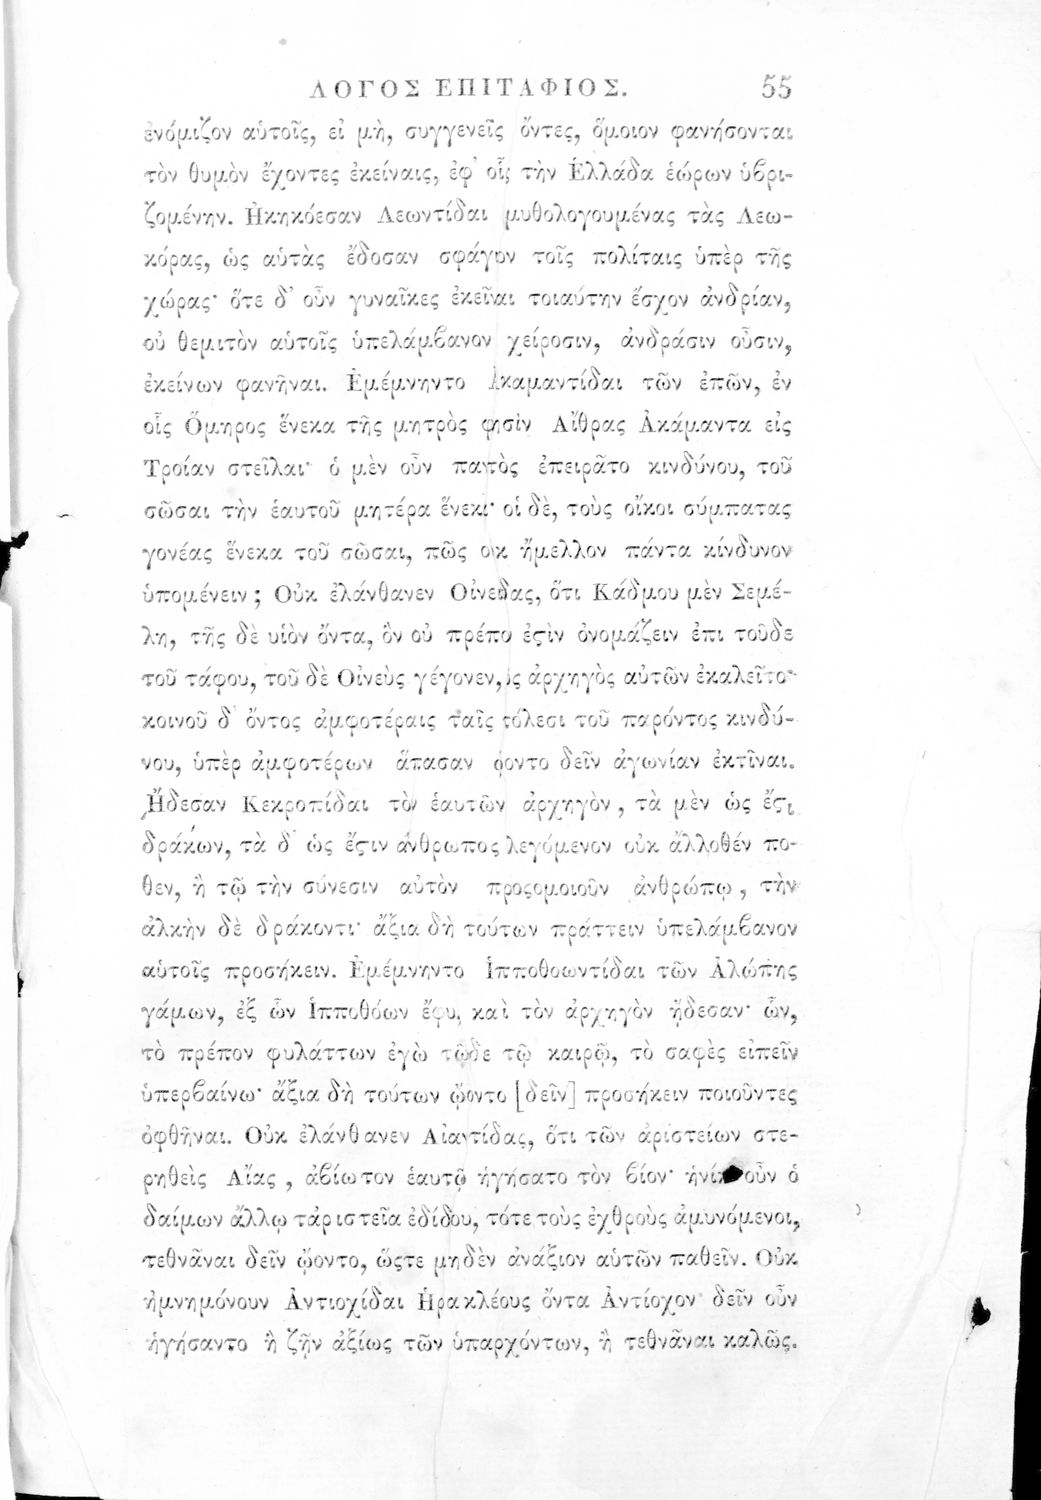 ΛΟΓΟΣ ΕΠΙΤΑΦΙΟΣ. 55
ἐνόμιζον αὑτοῖς, εἰ μὴ, συγγενεῖς ὄντες, ὅμοιον φανήσονται
τὸν θυμὸν ἔχοντες ἐκείναις, ἐφ’ οἷς τὴν Ἑλλάδα ἑώρων ὑβρι-
ζομένην. Ἠκηκόεσαν Λεωντίδαι μυθολογουμένας τὰς Λεω-
κόρας, ὡς αὑτὰς ἔδοσαν σφάγιον τοῖς πολίταις ὑπὲρ τῆς
χώρας· ὅτε δ’ οὖν γυναῖκες ἐκεῖναι τοιαύτην ἔσχον ἀνδρίαν,
οὐ θεμιτὸν αὑτοῖς ὑπελάμβανον χείροσιν, ἀνδράσιν οὖσιν,
ἐκείνων φανῆναι. Ἐμέμνηντο Ἀκαμαντίδαι τῶν ἐπῶν, ἐν
οἷς Ὅμηρος ἕνεκα τῆς μητρὸς φησὶν Αἴθρας Ἀκάμαντα εἰς
Τροίαν στεῖλαι· ὁ μὲν οὖν παντὸς ἐπειρᾶτο κινδύνου, τοῦ
σῶσαι τὴν ἑαυτοῦ μητέρα ἕνεκα· οἱ δὲ, τοὺς οἴκοι σύμπατας
γονέας ἕνεκα τοῦ σῶσαι, πῶς οὐκ ἤμελλον πάντα κίνδυνον
ὑπομένειν; Οὐκ ἐλάνθανεν Οἰνείδας, ὅτι Κάδμου μὲν Σεμέ-
λη, τῆς δὲ υἱὸν ὄντα, ὃν οὐ πρέπον ἐϛὶν ὀνομάζειν ἐπι τοῦδε
τοῦ τάφου, τοῦ δὲ Οἰνεὺς γέγονεν, ὃς ἀρχηγὸς αὐτῶν ἐκαλεῖτο·
κοινοῦ δ’ ὄντος ἀμφοτέραις ταῖς πόλεσι τοῦ παρόντος κινδύ-
νου, ὑπὲρ ἀμφοτέρων ἅπασαν ᾤοντο δεῖν ἀγωνίαν ἐκτῖναι.
Ἤδεσαν Κεκροπίδαι τὸν ἑαυτῶν ἀρχηγὸν, τὰ μὲν ὡς ἔϛι
δράκων, τὰ δ’ ὡς ἔϛιν ἄνθρωπος λεγόμενον οὐκ ἄλλοθέν πο-
θεν, ἢ τῷ τὴν σύνεσιν αὐτὸν προςομοιοῦν ἀνθρώπῳ, τὴν
ἀλκὴν δὲ δράκοντι· ἄξια δὴ τούτων πράττειν ὑπελάμβανον
αὑτοῖς προσήκειν. Ἐμέμνηντο Ἱπποθοωντίδαι τῶν Ἀλώπης
γάμων, ἐξ ὧν Ἱπποθόων ἔφυ, καὶ τὸν ἀρχηγὸν ᾔδεσαν· ὧν,
τὸ πρέπον φυλάττων ἐγὼ τῷδε τῷ καιρῷ, τὸ σαφὲς εἰπεῖν
ὑπερβαίνω· ἄξια δὴ τούτων ᾤοντο [δεῖν] προσήκειν ποιοῦντες
ὀφθῆναι. Οὐκ ἐλάνθανεν Αἰαντίδας, ὅτι τῶν ἀριστείων στε-
ρηθεὶς Αἴας, ἀβίωτον ἑαυτῷ ἡγήσατο τὸν βίον· ἡνίκα οὖν ὁ
δαίμων ἄλλῳ τἀριστεῖα ἐδίδου, τότε τοὺς ἐχθροὺς ἀμυνόμενοι,
τεθνᾶναι δεῖν ᾤοντο, ὥςτε μηδὲν ἀνάξιον αὑτῶν παθεῖν. Οὐκ
ἠμνημόνουν Ἀντιοχίδαι Ἡρακλέους ὄντα Ἀντίοχον· δεῖν οὖν
ἡγήσαντο ἢ ζῆν ἀξίως τῶν ὑπαρχόντων, ἢ τεθνᾶναι καλῶς.